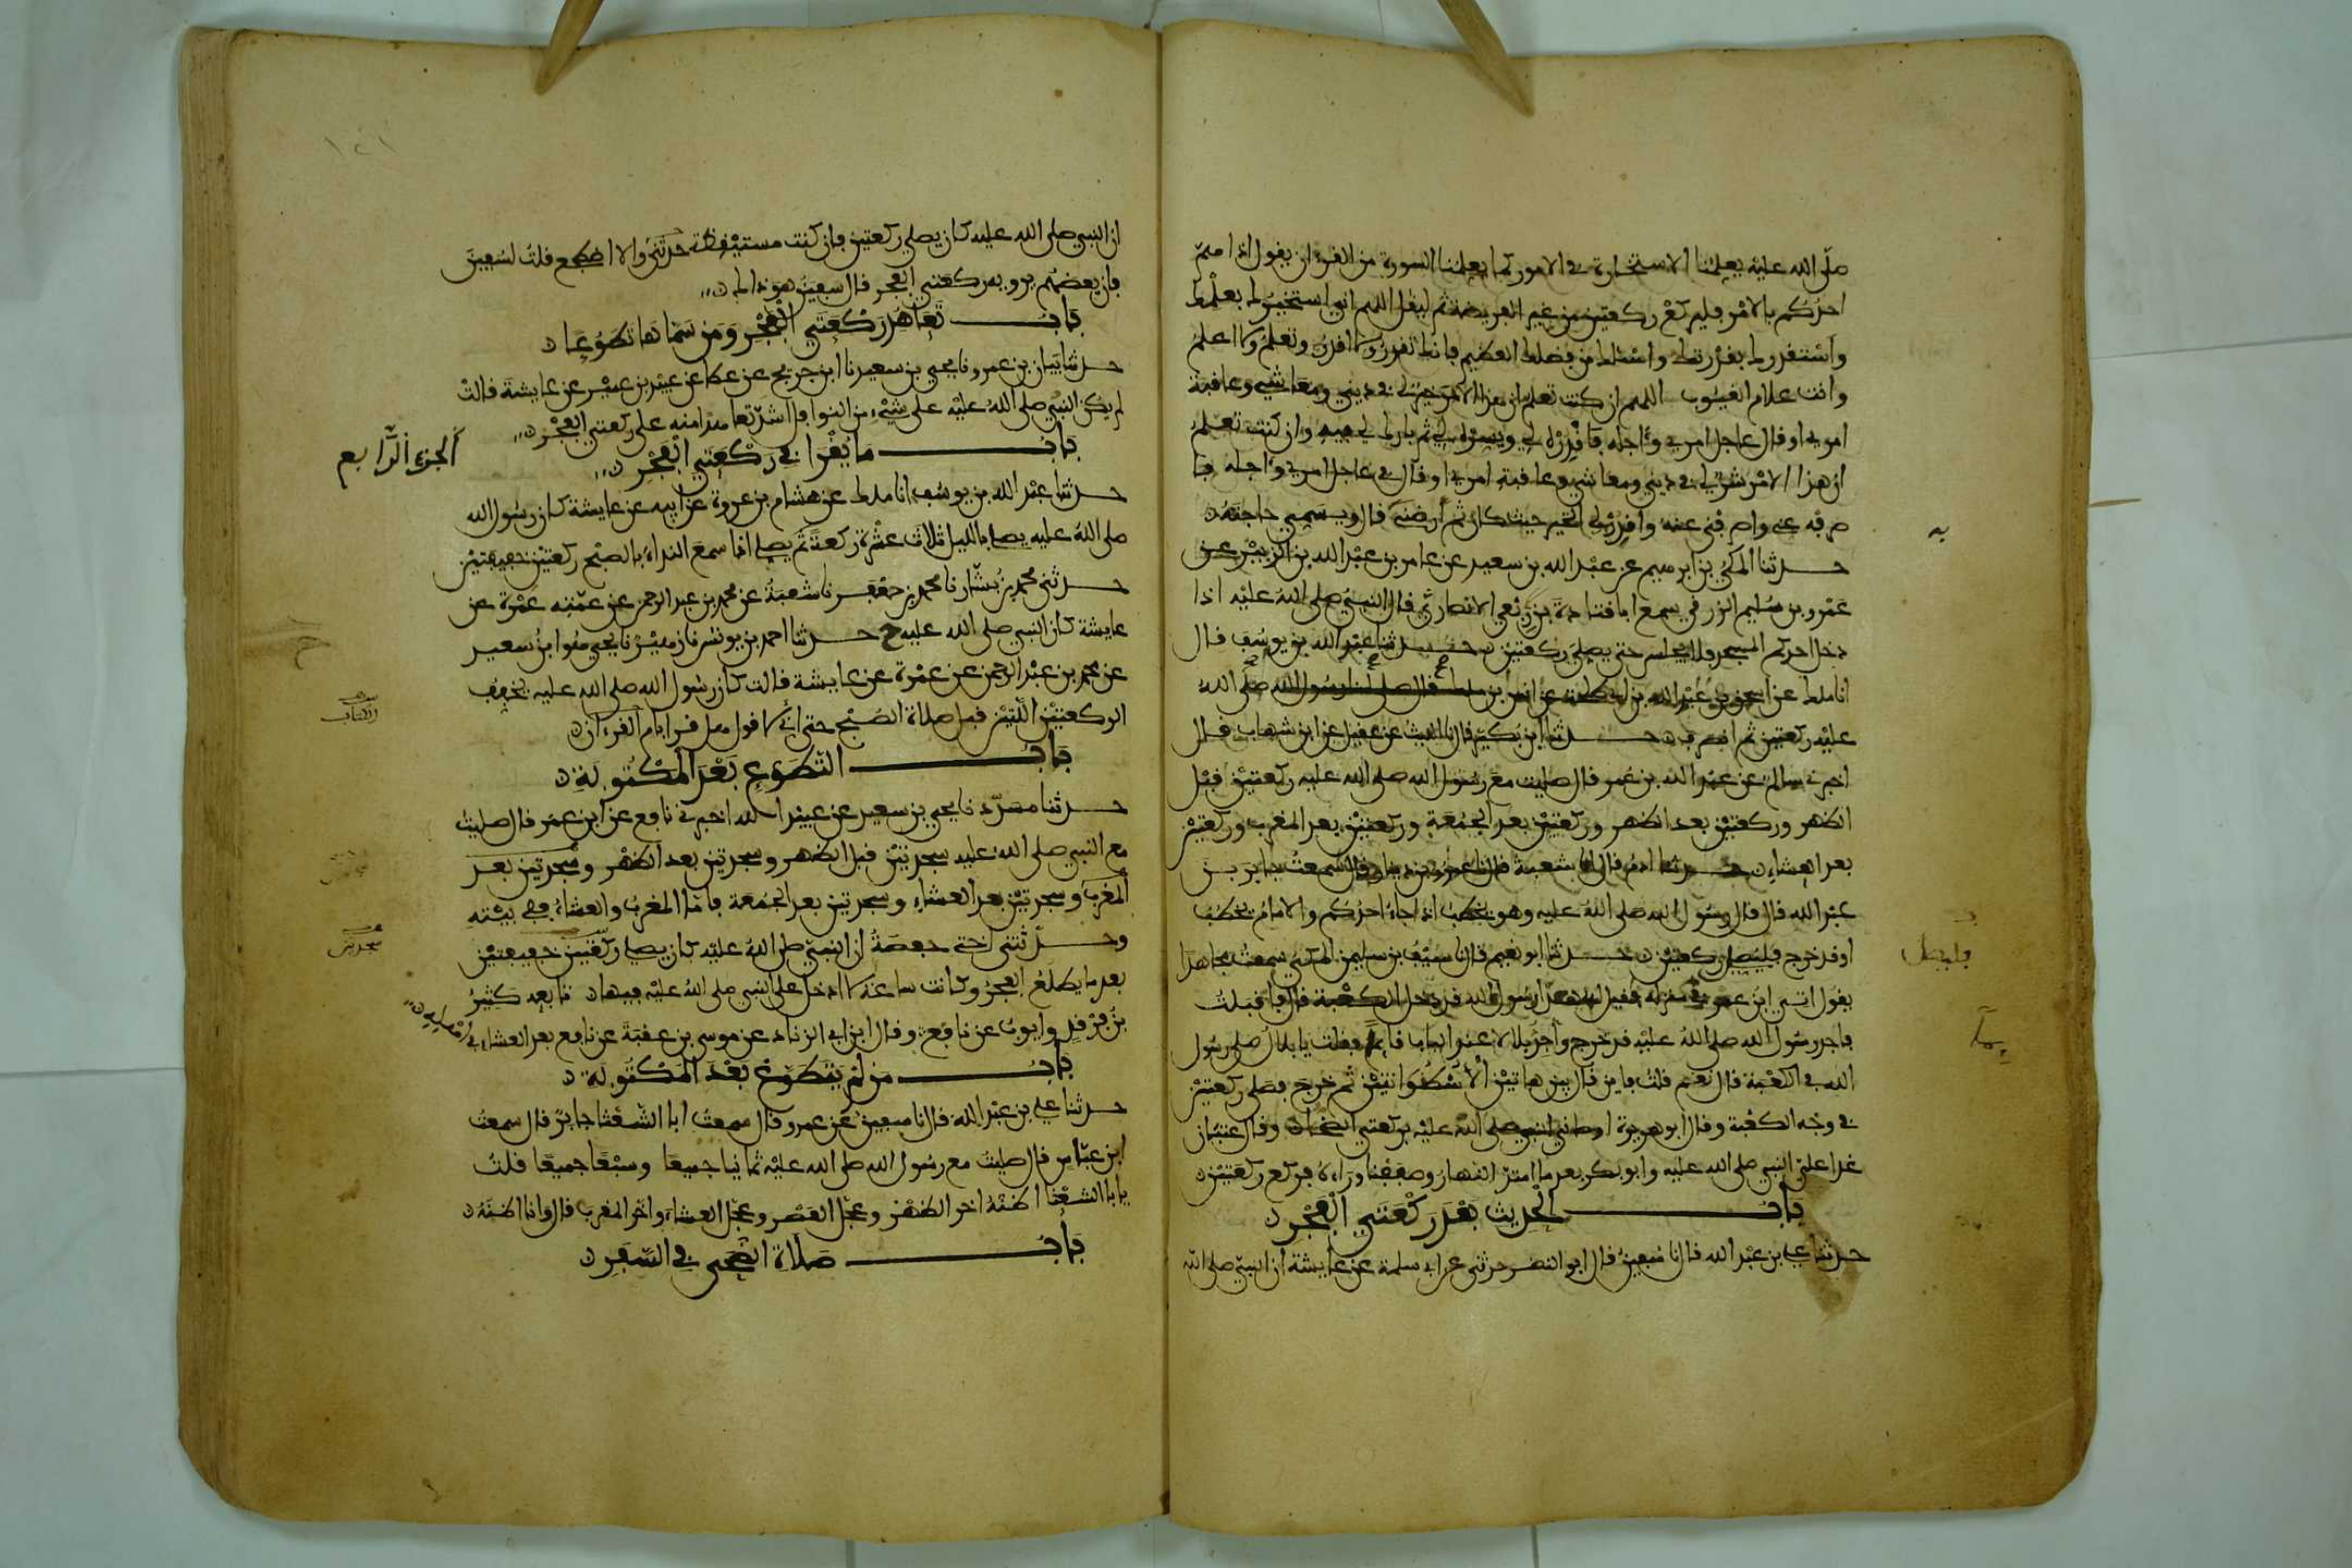 صلى الله عليه يعلمنا الاستخارة في الامور كما يعلمنا السورة من القرءان يقول اذا هم
احدكم بالامر فليركع ركعتين من غير الفريضة ثم ليقل اللهم اني استخيرك بعلمك
واستقدرك بقدرتك واسئلك من فضلك العظيم فانك تقدر ولا اقدر وتعلم ولا اعلم
وانت علام الغيوب اللهم ان كنت تعلم ان هذا الامر خير لي في ديني ومعاشي وعاقبة
امري او قال عاجل امري وءاجله فاقدره لي ويسره لي ثم بارك لي فيه وان كنت تعلم
ان هذا الامر شر لي في ديني ومعاشي وعاقبة امري او قال في عاجل امري وءاجله فا
صرفه عني واصرفني عنه واقدر لي الخير حيث كان ثم ارضني قال ويسمي حاجته
حدثنا المكي بن ابرهيم عن عبد الله بن سعيد عن عامر بن عبد الله بن الزبير عن
عمرو بن سليم الزرقي سمع ابا قتادة بن ربعي الانصاري قال النبي صلى الله عليه اذا
دخل احدكم المسجد فلا يجلس حتى يصلي ركعتين حدثنا عبد الله بن يوسف قال
انا ملك عن اسحق بن عبد الله بن ابي طلحة عن انس بن ملك قال صلى لنا رسول الله صلى الله
عليه ركعتين ثم انصرف حدثنا ابن بكير قال نا الليث عن عقيل عن ابن شهاب قال
اخبرني سالم عن عبد الله بن عمر قال صليت مع رسول الله صلى الله عليه ركعتين قبل
الظهر وركعتين بعد الظهر وركعتين بعد الجمعة وركعتين بعد المغرب وركعتين
بعد العشاء حدثنا ادم قال نا شعبة قال نا عمرو بن دينار قال سمعت جابر بن
عبد الله قال قال رسول الله صلى الله عليه وهو يخطب اذا جاء احدكم والامام يخطب
او قد خرج فليصل ركعتين حدثنا ابو نعيم قال نا سيف بن سليمن المكي سمعت مجاهدا
يقول اتي ابن عمر في منزله فقيل له هذا رسول الله قد دخل الكعبة قال فاقبلت
فاجد رسول الله صلى الله عليه قد خرج واجد بلالا عند الباب قائما فقلت يا بلال صلى رسول
الله في الكعبة قال نعم قلت فاين قال بين هاتين الاسطوانتين ثم خرج فصلى ركعتين
في وجه الكعبة وقال ابو هريرة اوصاني النبي صلى الله عليه بركعتي الضحى وقال عتبان
غدا علي النبي صلى الله عليه وابو بكر بعد ما امتد النهار وصففنا وراءه فركع ركعتين
باب الحديث بعد ركعتي الفجر
حدثنا علي بن عبد الله قال نا سفين قال ابو النضر حدثني عن ابي سلمة عن عايشة ان النبي صلى الله
به
فليصل
ان النبي صلى الله عليه كان يصلي ركعتين فان كنت مستيقظة حدثني والا اضطجع قلت لسفين
فان بعضهم يرويه ركعتي الفجر قال سفين هو ذاك
باب تعاهد ركعتي الفجر ومن سماها تطوعا
حدثنا بيان بن عمرو نا يحيى بن سعيد نا ابن جريج عن عطا عن عبيد بن عمير عن عايشة قالت
لم يكن النبي صلى الله عليه على شيء من النوافل اشد تعاهدا منه على ركعتي الفجر
باب ما يقرا في ركعتي الفجر
الجزء الرابع
حدثنا عبد الله بن يوسف انا ملك عن هشام بن عروة عن ابيه عن عايشة كان رسول الله
صلى الله عليه يصلي بالليل ثلاث عشرة ركعة ثم يصلي اذا سمع النداء بالصبح ركعتين خفيفتين
حدثني محمد بن بشار نا محمد بن جعفر نا شعبة عن محمد بن عبد الرحمن عن عمته عمرة عن
عايشة كان النبي صلى الله عليه ح حدثنا احمد بن يونس نا زهير نا يحيى هو ابن سعيد
عن محمد بن عبد الرحمن عن عمرة عن عايشة قالت كان رسول الله صلى الله عليه يخفف
الركعتين اللتين قبل صلاة الصبح حتى اني لاقول هل قرا بام القرءان
باب التطوع بعد المكتوبة
حدثنا مسدد نا يحيى بن سعيد عن عبيد الله اخبرني نافع عن ابن عمر قال صليت
مع النبي صلى الله عليه سجدتين قبل الظهر وسجدتين بعد الظهر وسجدتين بعد
المغرب وسجدتين بعد العشاء وسجدتين بعد الجمعة فاما المغرب والعشاء ففي بيته
وحدثتني اختي حفصة ان النبي صلى الله عليه كان يصلي ركعتين خفيفتين
بعد ما يطلع الفجر وكانت ساعة لا ادخل على النبي صلى الله عليه فيها تابعه كثير
بن فرقد وايوب عن نافع وقال ابن ابي الزناد عن موسى بن عقبة عن نافع بعد العشاء في اهله
باب من لم يتطوع بعد المكتوبة
حدثنا علي بن عبد الله قال نا سفين عن عمرو قال سمعت ابا الشعثا جابرا قال سمعت
ابن عباس قال صليت مع رسول الله صلى الله عليه ثمانيا جميعا وسبعا جميعا قلت
يابا الشعثا اظنه اخر الظهر وعجل العصر وعجل العشاء واخر المغرب قال وانا اظنه
باب صلاة الضحى في السفر
ح
الكتاب
سجدتين
١٤١